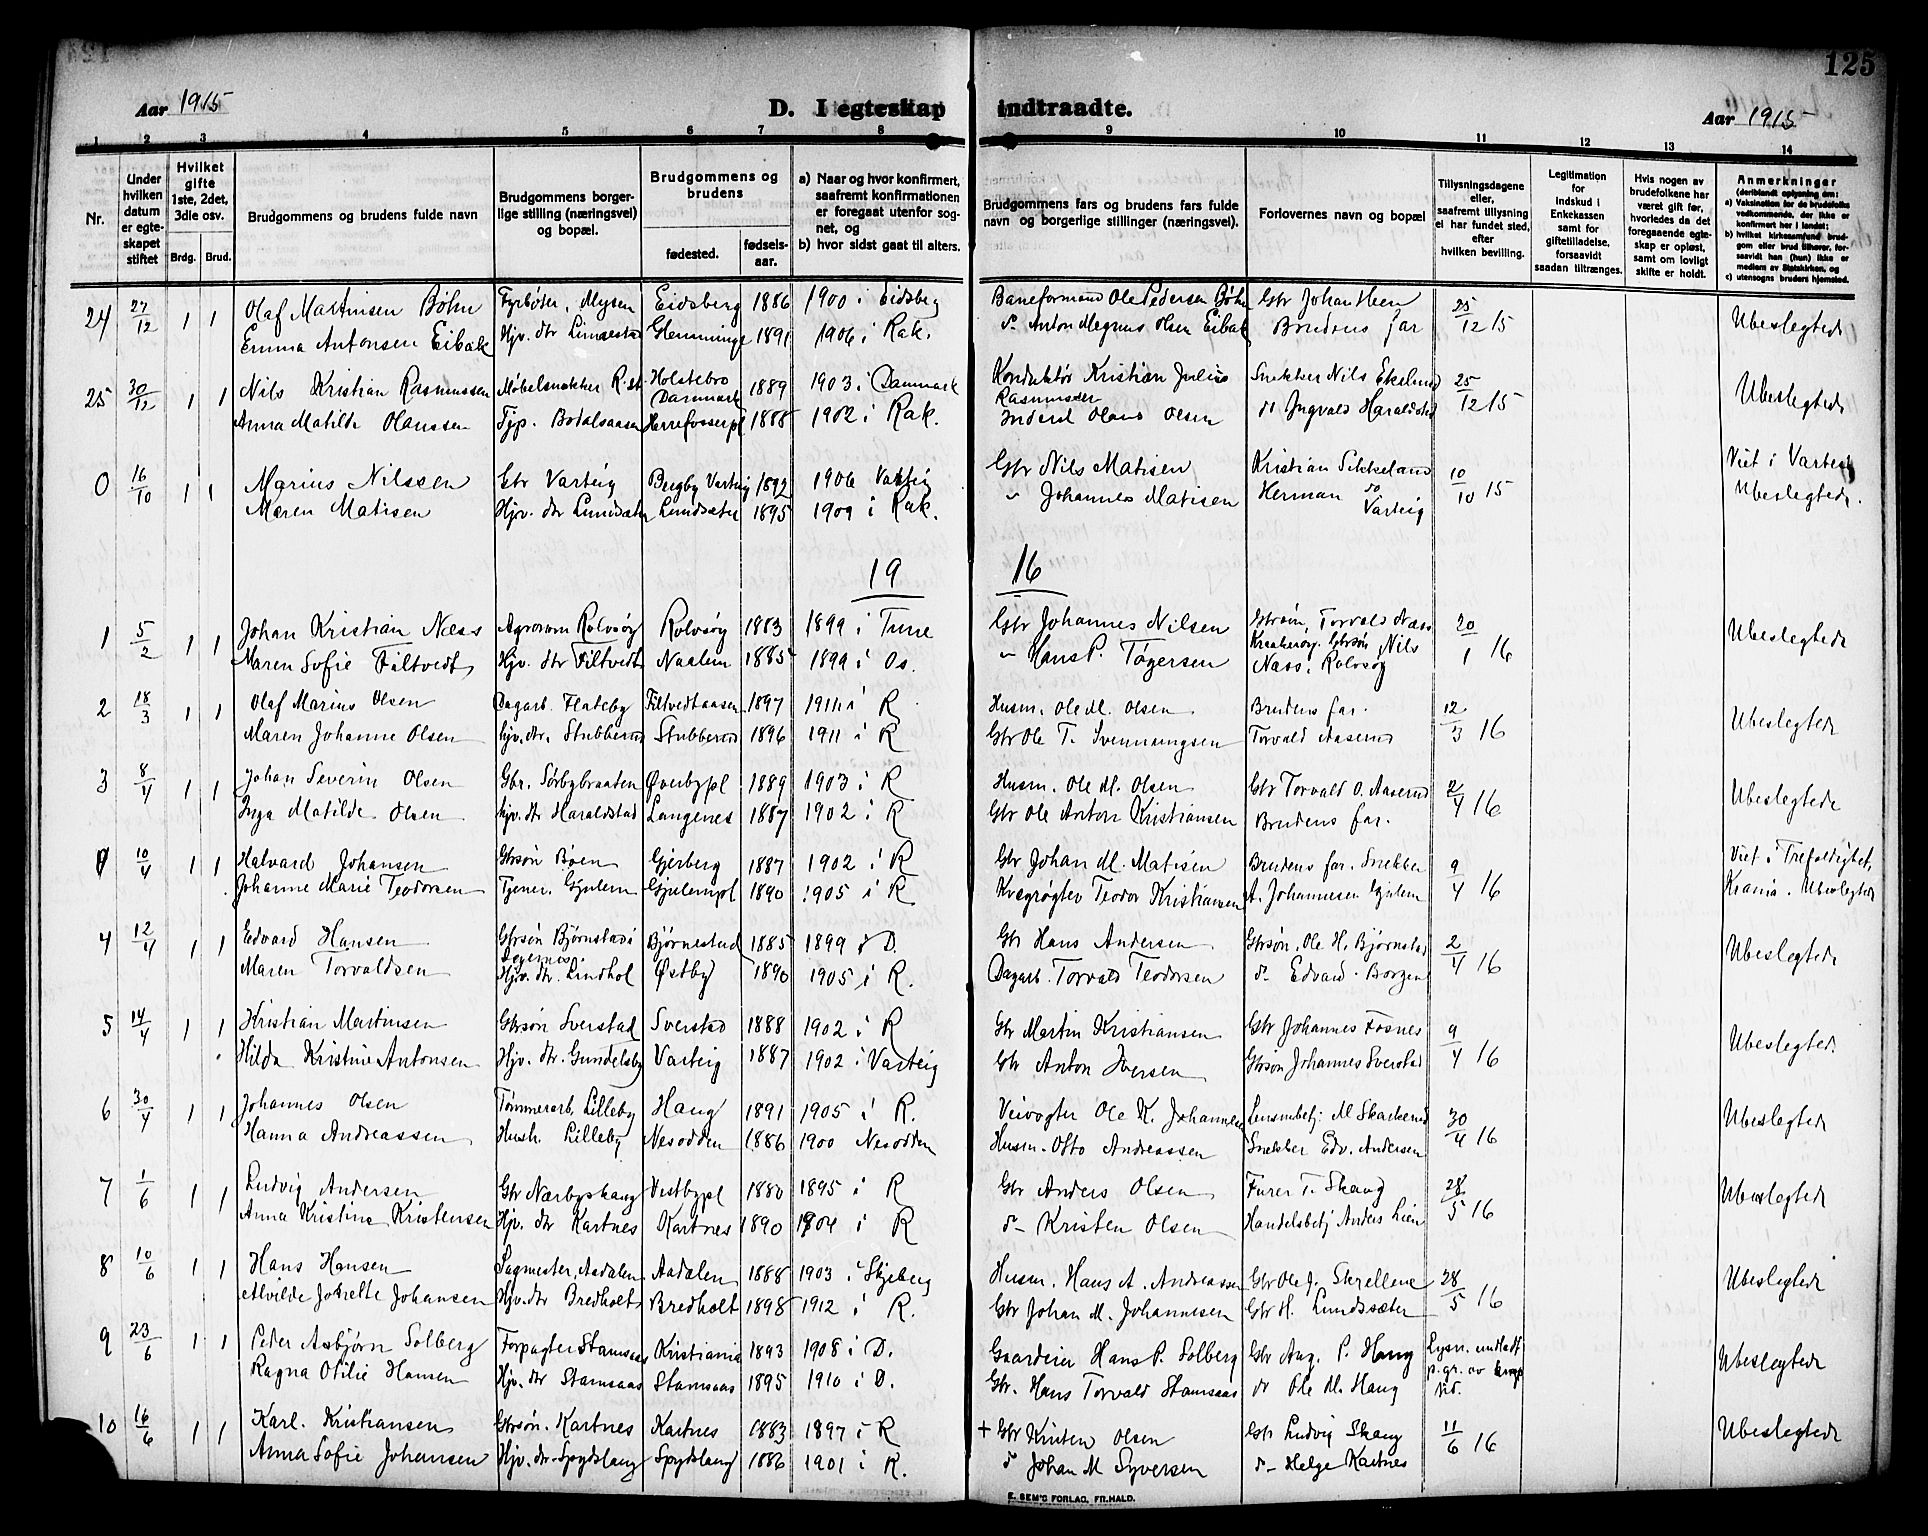 125
Aar 1915 D. I egteskap indtraadte. Aar 1915
1 2 3 4 5 6 7 8 9 10 11 12 13 14
Nr.
Under hvilken datum er egteskapet stiftet
Hvilket gifte 1ste, 2det, 3die osv.
Brdg. Brud.
Brudgommens og brudens fulde navn
Brudgommens borgerlige stilling (næringsvei) og bopæl.
Brudgommens og brudens
fødested. fødselsaar.
a) Naar og hvor konfirmert, saafremt konfirmationen er foregaat utenfor sognet, og
b) hvor sidst gaat til alters.
Brudgommens fars og brudens fars fulde navn og borgerlige stillinger (næringsvei).
Forlovernes navn og bopæl
Tillysningsdagene eller, saafremt tillysning ei har fundet sted, efter hvilken bevilling.
Legitimation for indskud i Enkekassen samt for giftetilladelse, forsaavidt saadan tiltrænges.
Hvis nogen av brudefolkene har været gift før, hvorledes da det foregaaende egteskap er opløst, samt om lovligt skifte er holdt.
Anmerkninger (deriblandt oplysning om:
a) Vaksination for de brudefolks vedkommende, der ikke er konfirmert her i landet;
b) hvilket kirkesamfund brudgom eller brud tilhører, forsaavidt han (hun) ikke er medlem av Statskirken, og
c) utensogns bruders hjemsted.
24 27/12 1 1 Olaf Martinsen Bøhn Fyrbøter, Mysen Eidsberg 1886 1900 i Eidsberg Baneformand Ole Pedersen Bøhn Gbr Johan Heen 25/12 15 Ubeslegtede
Emma Antonsen Eibak Hjv. dtr Glemminge 1891 1906 i Rak. do Anton Magnus Olsen Eibak Brudens far
25 30/12 1 1 Nils Kristian Rasmussen Møbelsnekker R.st. Holstebro Danmark 1889 1903 i Danmark Konduktør Kristian Julius Rasmussen Snekker Nils Ekelund 25/12 15 Ubeslegtede
Anna Matilde Olaussen Tjp. Bodalsaasen Herrefosserpl 1888 1902 i Rak. Inderst Olaus Olsen do Ingvald Haraldstad
0 16/10 1 1 Marius Nilssen Gbr Varteig Bergby Varteig 1892 1906 Varteig Gbr Nils Matisen Kristian Sikkeland 10/10 15 Viet i Varteig
Maren Matisen Hjv. dtr Lundsæter Lundsæter 1895 1909 i Rak. " Johannes Matisen Herman do Varteig Ubeslegtede.
19 16
1 5/2 1 1 Johan Kristian Næss Agronom Rolvsøy Rolvsøy 1883 1899 i Tune Gbr Johannes Nilsen Gbrsøn, Torvald Næss 20/1 16 Ubeslegtede
Maren Sofie Filtvedt Hjv. dtr Filtvedt Naalem 1885 1899 i Os. " Hans P. Tøgersen Gbrsøn Nils Næss. Rolvsøy
2 18/3 1 1 Olaf Marius Olsen Dagarb. Flateby Filtvedtaasen 1897 1911 i R Husm. Ole M. Olsen Brudens far. 12/3 16 Ubeslegtede
Maren Johanne Olsen hjv. dtr. Stubberud Stubberud 1896 1911 i R Gbr Ole T. Svenningsen Torvald Aaserud
3 8/4 1 1 Johan Severin Olsen Gbr. Sørbybraaten Øverbypl 1889 1903 i R Husm. Ole M. Olsen Gbr Torvald O. Aaserud 2/4 16 Ubeslegtede
Inga Matilde Olsen hjv. dtr Haraldstad Langenes 1887 1902 i R Gbr Ole Anton Kristiansen Brudens far.
0 10/4 1 1 Halvard Johansen Gbrsøn Boen Gjerberg 1887 1902 i R Gbr Johan M. Matisen Brudens far. Snekker 9/4 16 Viet i Trefoldighet,
Johanne Marie Teodorsen Tjener, Gjulem Gjulempl 1890 1905 i R Kvægrøgter Teodor Kristiansen A. Johannesen Gjulem Krania. Ubeslegtede
4 12/4 1 1 Edvard Hansen Gbrsøn Bjørnstad i Degernes Bjørnestad 1885 1899 i D. Gbr Hans Andersen Gbrsøn. Ole H. Bjørnstad 2/4 16 Ubeslegtede
Maren Torvaldsen Hjv. dtr. Lindhol Østby 1890 1905 i R. Dagarb. Torvald Teodorsen do Edvard Borgen
5 14/4 1 1 Kristian Martinsen Gbrsøn Sverstad Sverstad 1888 1902 i R Gbr Martin Kristiansen Gbr Johannes Fosnes 9/4 16 Ubeslegtede
Hilda Kristine Antonsen Hjv. dtr. Gundelsby Varteig 1887 1902 i Varteig Gbr Anton Iversen Gbrsøn Johannes Sverstad
6 30/4 1 1 Johannes Olsen Tømmerarb, Lilleby Haug 1891 1905 i R. Veivogter Ole K. Johannesen Lensmbetj. M Skakerud 30/4 16 Ubeslegtede
Hanna Andreassen Hush. Lilleby Nesodden 1886 1900 Nesodden Husm. Otto Andreassen Snekker Edv. Andersen
7 1/6 1 1 Ludvig Andersen Gbr Nærbyshaug Vestbypl 1880 1895 i R Gbr Anders Olsen Furer T. Skaug 28/5 16 Ubeslegtede
Anna Kristine Kristensen Hjv. dtr Kartnes Kartnes 1890 1904 i R do Kristen Olsen Handelsbetj Anders Lien
8 10/6 1 1 Hans Hansen Sagmester, Aadalen Aadalen 1888 1903 i Skjeberg Husm. Hans A. Andreassen Gbr Ole J. Skrellene 28/5 16 Ubeslegtede
Alvilde Johansen Hjv. dtr Bredholt Bredholt 1898 1912 i R. Gbr Johan M. Johannesen Gbr H. Lundsæter
9 23/6 1 1 Peder Asbjørn Solberg Forpagter Stamsaas Kristiania 1893 1908 i D. Gaardeier Hans P. Solberg Gbr Aug. P. Haug Lysn. undladt p.gr. av Ubeslegtede
Ragna Otilie Hansen Hjv. dtr Stamsaas Stamsaas 1895 1910 i D. Gbr. Hans Torvald Stamsaas do Ole M. Haug
10 16/6 1 1 Karl. Kristiansen Gbrsøn. Kartnes Kartnes 1883 1897 i R + Gbr Kristen Olsen Gbr Ludvig Skaug 11/6 16 Ubeslegtede
Anna Sofie Johansen Hjv. dtr. Spydslaug Spydslaug 1886 1901 i R. do Johan M Syversen do Helge Kartnes
E. SEM'S FORLAG, FR.HALD.